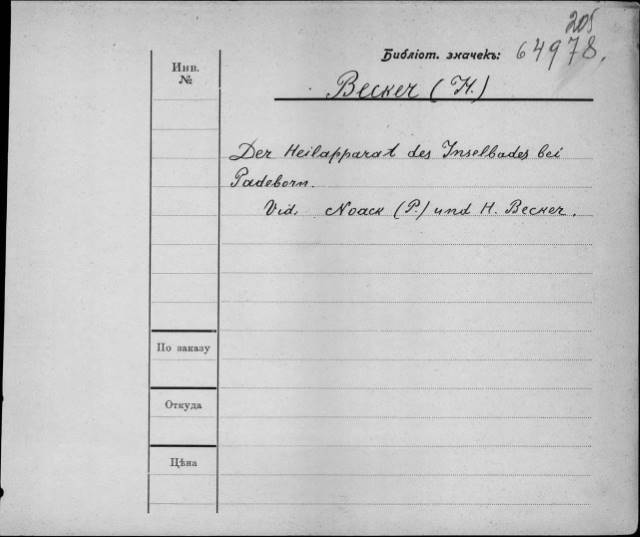 205
Библіот. значекъ: 64978.
Инв.
№
Becker (H.)
Der Heilapparat des Inselbades bei
Padeborn.
Vid. Noack (P.) und H. Becker.
По заказу
Откуда
Цѣна